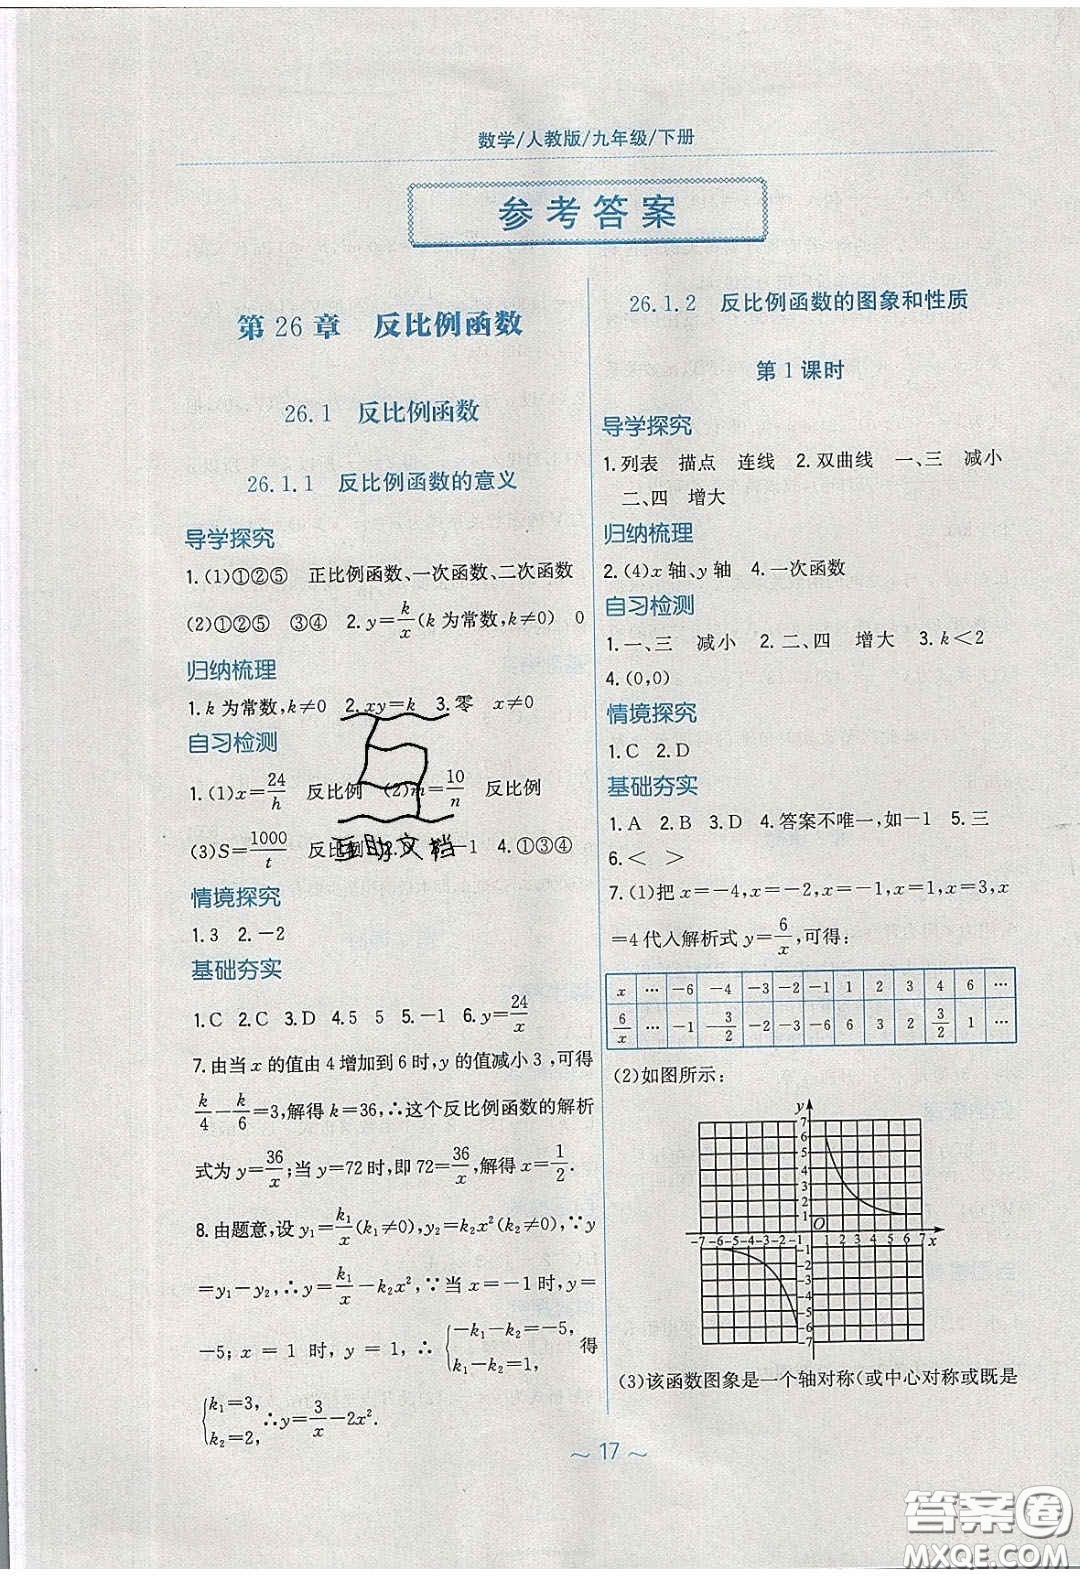 数学/人教版/九年级/下册
参考答案
第26章 反比例函数
26.1 反比例函数
26.1.1 反比例函数的意义
导学探究
1.(1)①②⑤ 正比例函数、一次函数、二次函数
(2)①②⑤ ③④ 2.y=k/x(k为常数,k≠0) 0
归纳梳理
1.k为常数,k≠0 2.xy=k 3.零 x≠0
自习检测
1.(1)x=24/h 反比例 (2)m=10/n 反比例
(3)S=1000/t 反比例 -1 4.①③④
互助文档
情境探究
1.3 2.-2
基础夯实
1.C 2.C 3.D 4.5 5 5.-1 6.y=24/x
7.由当x的值由4增加到6时,y的值减小3,可得
k/4-k/6=3,解得k=36,∴这个反比例函数的解析
式为y=36/x;当y=72时,即72=36/x,解得x=1/2.
8.由题意,设y₁=k₁/x(k₁≠0),y₂=k₂x²(k₂≠0),∵y
=y₁-y₂,∴y=k₁/x-k₂x²,∵当x=-1时,y=
-5;x=1时,y=1,∴{-k₁-k₂=-5, 得
k₁-k₂=1,
{k₁=3, ∴y=3/x-2x².
k₂=2,
26.1.2 反比例函数的图象和性质
第1课时
导学探究
1.列表 描点 连线 2.双曲线 一、三 减小
二、四 增大
归纳梳理
2.(4)x轴、y轴 4.一次函数
自习检测
1.一、三 减小 2.二、四 增大 3.k<2
4.(0,0)
情境探究
1.C 2.D
基础夯实
1.A 2.B 3.D 4.答案不唯一,如-1 5.三
6.< >
7.(1)把x=-4,x=-2,x=-1,x=1,x=3,x
=4代入解析式y=6/x,可得:
x … -6 -4 -3 -2 -1 1 2 3 4 6 …
6/x … -1 -3/2 -2 -3 -6 6 3 2 3/2 1 …
(2)如图所示:
y
7
6
5
4
3
2
1
-7-6-5-4-3-2-1 O 1 2 3 4 5 6 7 x
-1
-2
-3
-4
-5
-6
-7
(3)该函数图象是一个轴对称(或中心对称或既是
~ 17 ~
答案圈
MXQE.COM